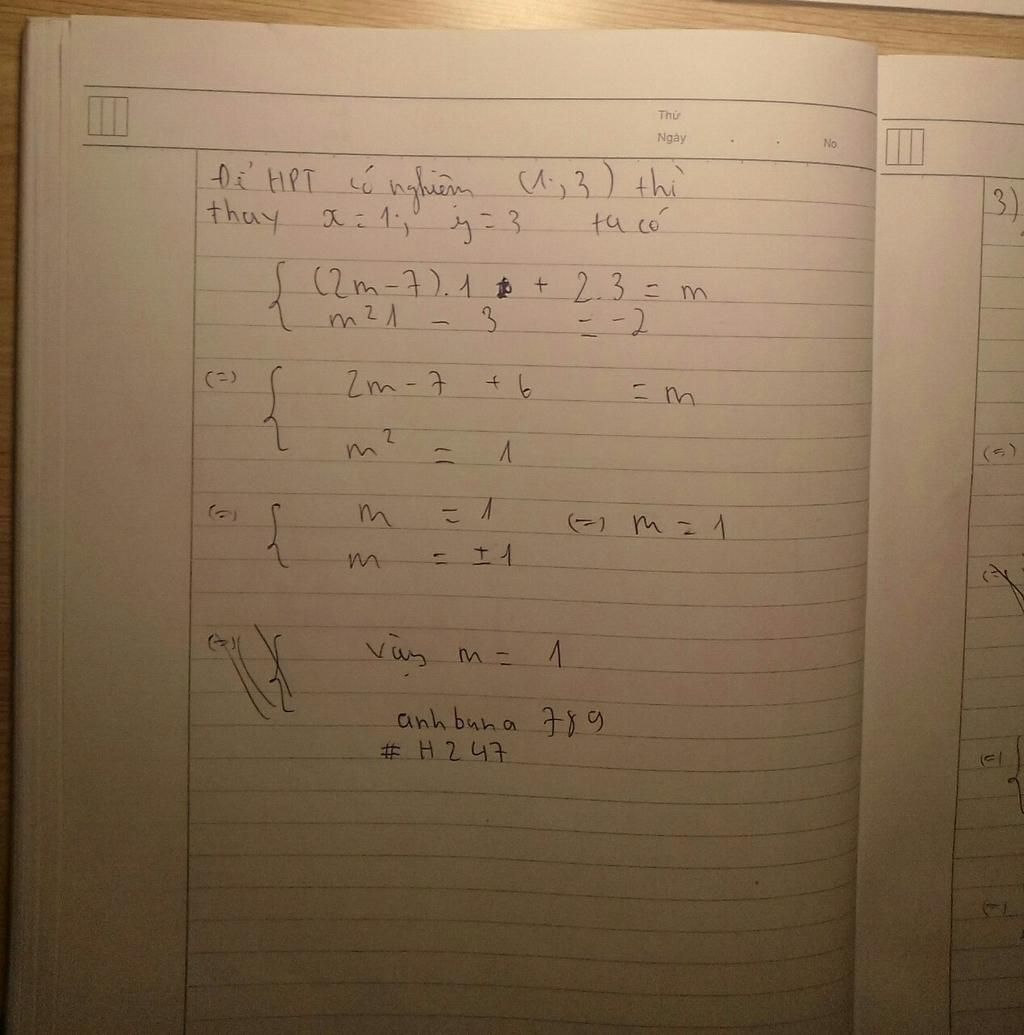 Thứ
Ngày . . No.
Để HPT có nghiệm (1;, 3) thì
thay x = 1; y = 3 ta có
{ (2m - 7).1 + 2.3 = m
m²1 - 3 = -2
(=) { 2m - 7 + 6 = m
m² = 1
(=) { m = 1 (=) m = 1
m = ±1
vậy m = 1
anhbuna 789
# H247
3)
(=)
(=)
(=) {